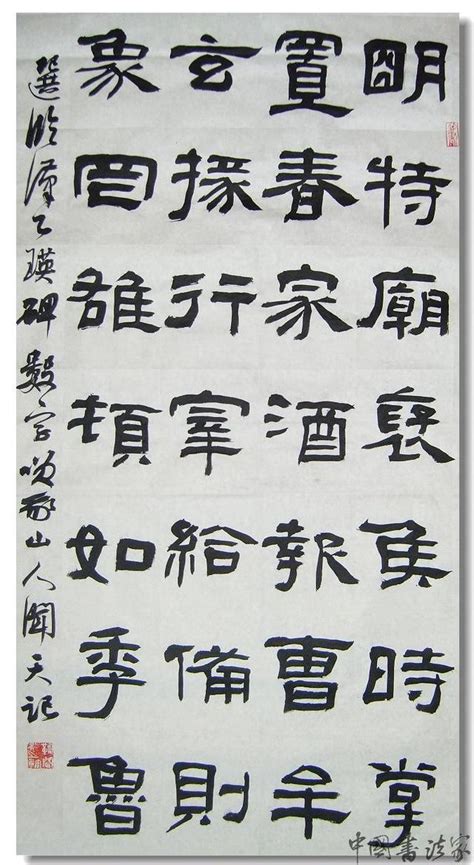 明特廟褒侯時掌
置春家酒報曹
玄掾行宰給備則
象雒頓如季魯
選臨漢乙瑛碑數字山人聞天記
中國書法家